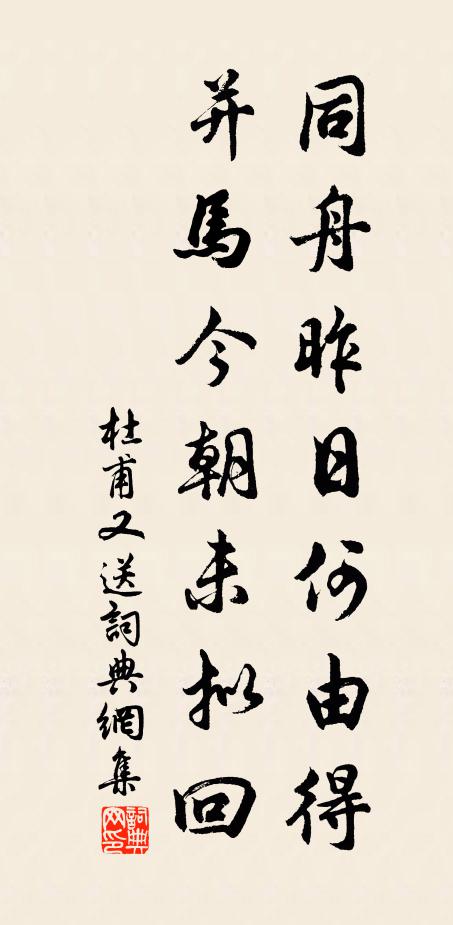 同舟昨日何由得
并馬今朝未拟回
杜甫又送詞典網集
詞典網印